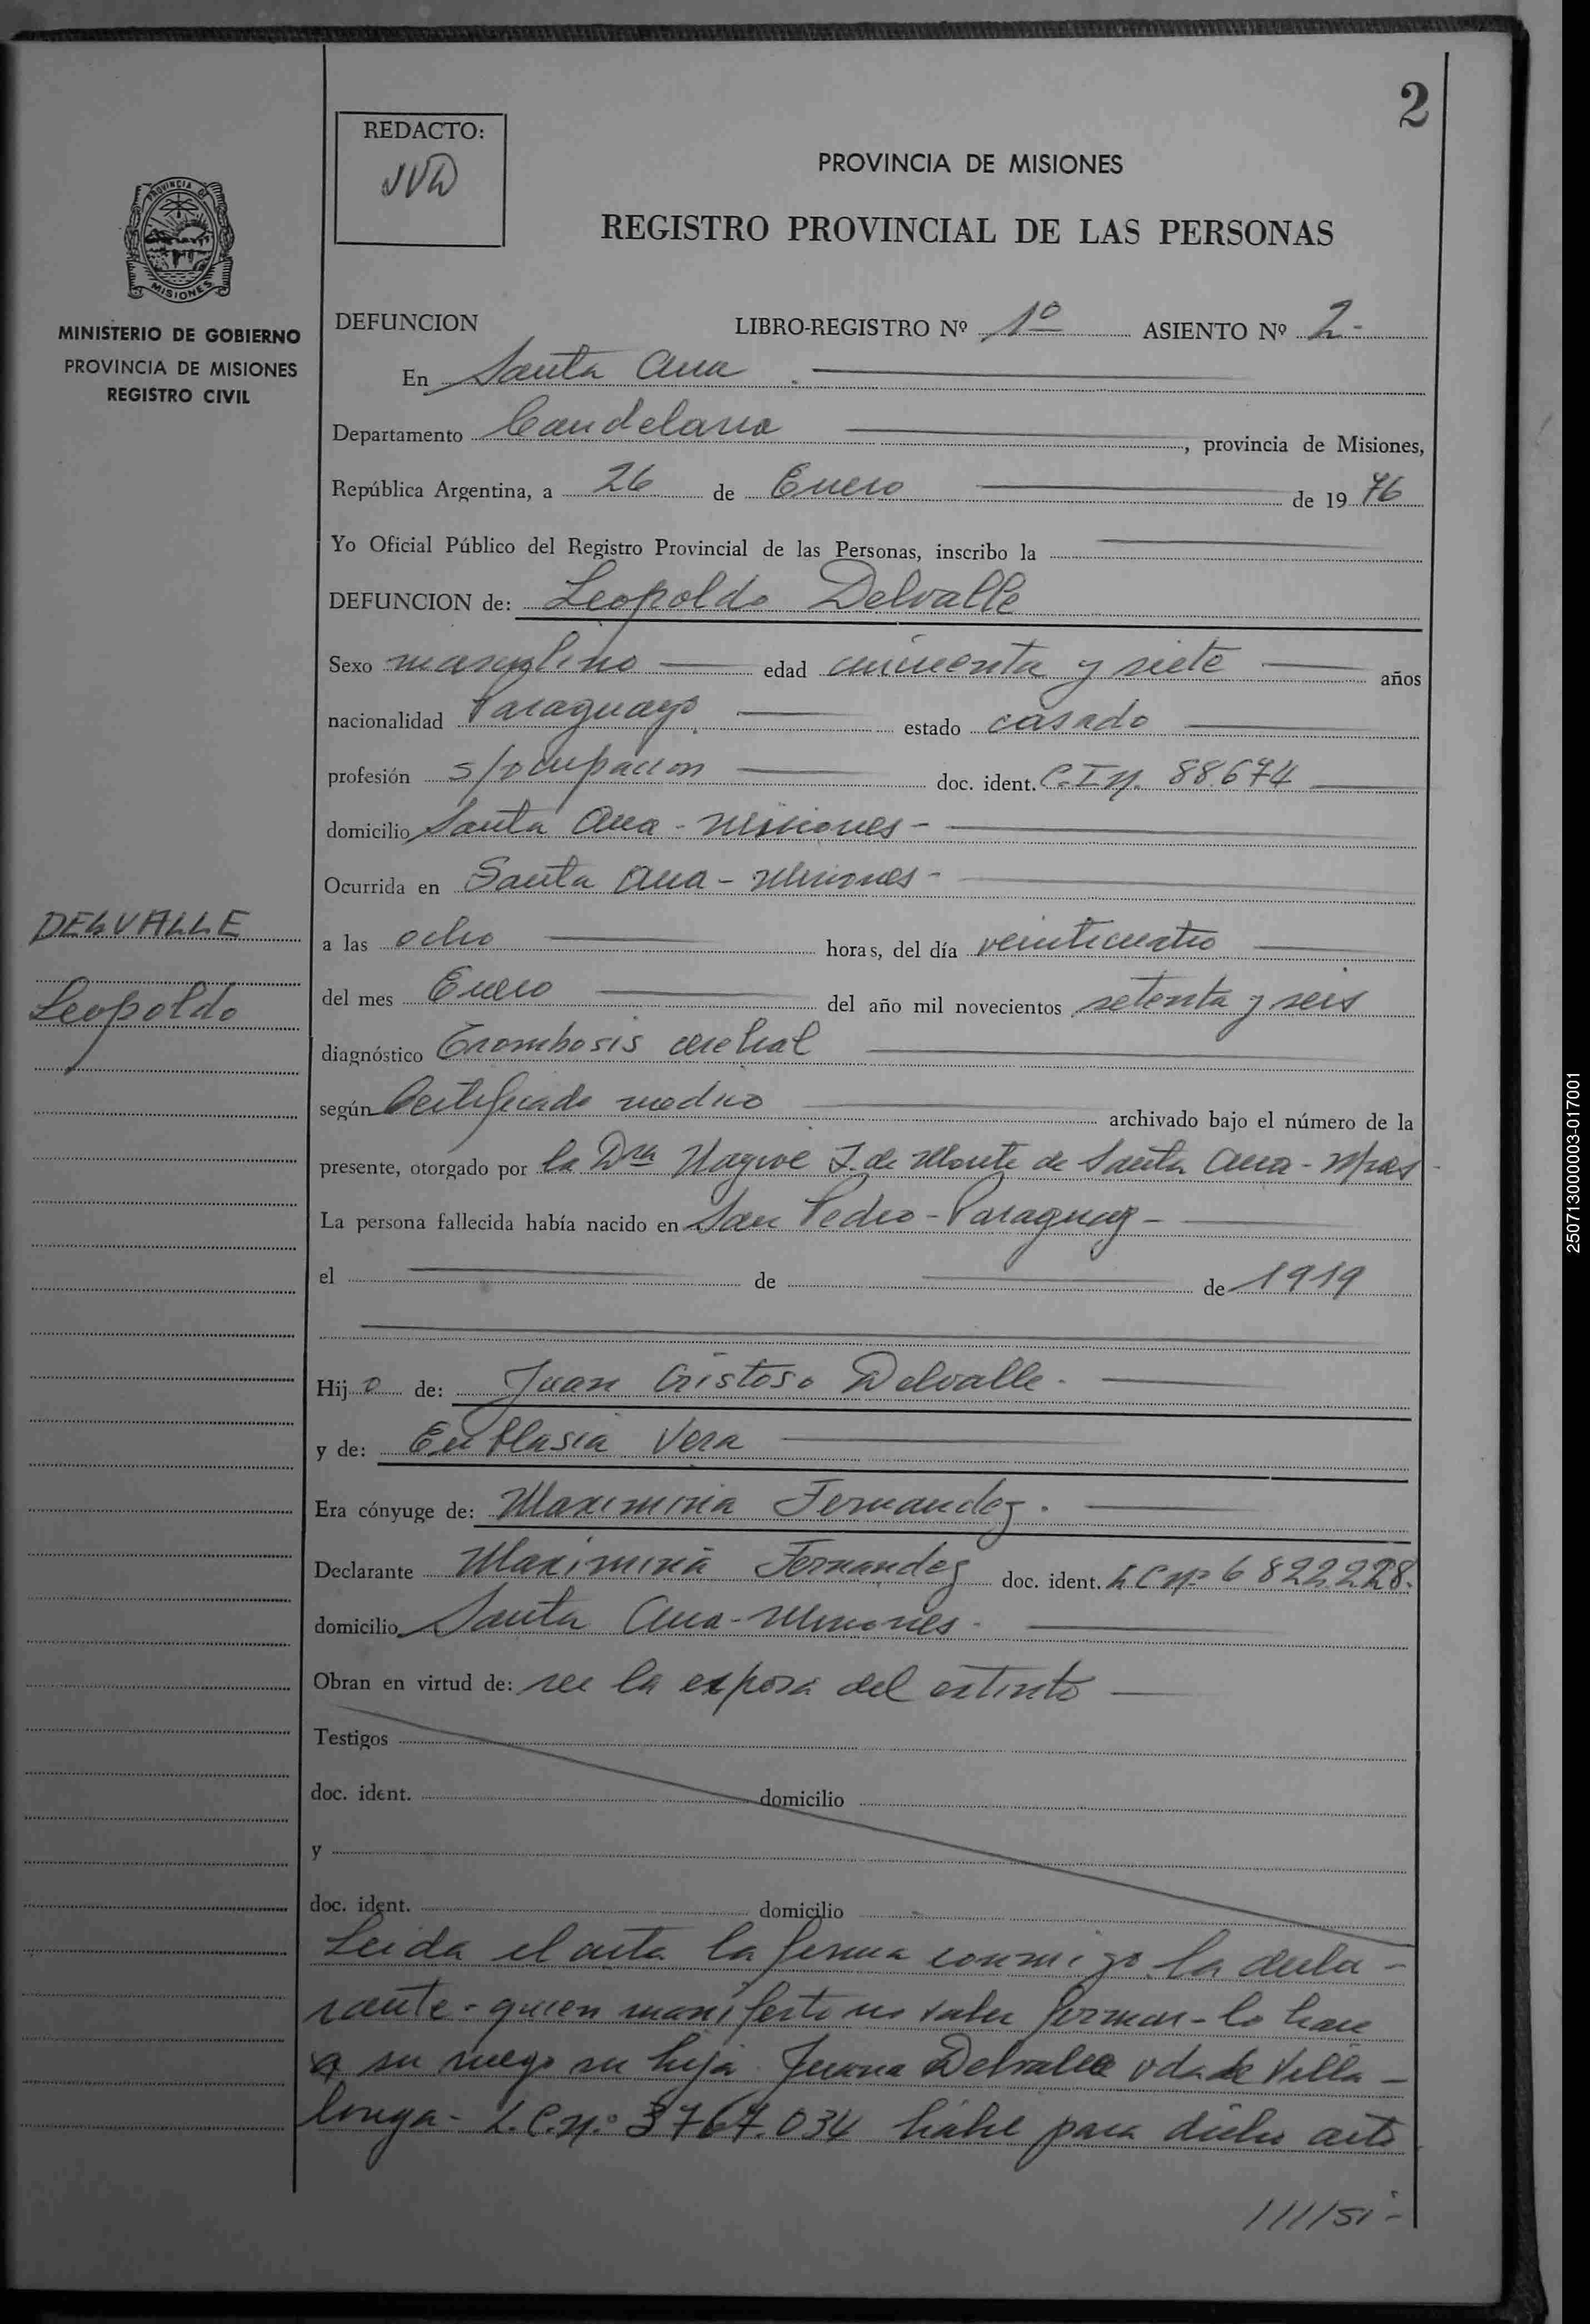 2
REDACTO:
PROVINCIA DE MISIONES
REGISTRO PROVINCIAL DE LAS PERSONAS
PROVINCIA DE
MISIONES
MINISTERIO DE GOBIERNO
PROVINCIA DE MISIONES
REGISTRO CIVIL
DEFUNCION LIBRO-REGISTRO Nº 1º ASIENTO Nº 2-
En Santa Ana
Departamento Candelaria, provincia de Misiones,
República Argentina, a 26 de Enero de 1976
Yo Oficial Público del Registro Provincial de las Personas, inscribo la
DEFUNCION de: Leopoldo Delvalle
Sexo masculino edad cincuenta y siete años
nacionalidad Paraguayo estado casado
profesión s/ocupacion doc. ident. C.I nº. 88.674
domicilio Santa Ana - Misiones -
Ocurrida en Santa Ana - Misiones -
DELVALLE
Leopoldo
a las ocho horas, del día veinticuatro
del mes Enero del año mil novecientos setenta y seis
diagnóstico Trombosis cerebral
según Certificado medico archivado bajo el número de la
presente, otorgado por la Dra J. de Monte de Santa Ana - Mnes
La persona fallecida había nacido en San Pedro - Paraguay -
el de de 1919
Hijo de: Juan Cristoso Delvalle.
y de: Vera
Era cónyuge de: Maximina Fernandez.
Declarante Maximina Fernandez doc. ident. L C nº 6 822.228.
domicilio Santa Ana - Misiones -
Obran en virtud de: ser la esposa del extinto
Testigos
doc. ident. domicilio
y
doc. ident. domicilio
Leida el acta la firma conmigo la decla-
rante - quien manifesto no saber firmar - lo hace
a su ruego su hija Juana Delvalle vda de Villa-
longa - L.C. nº 3767.034 habil para dicho acto
////si -
2507130000003-017001